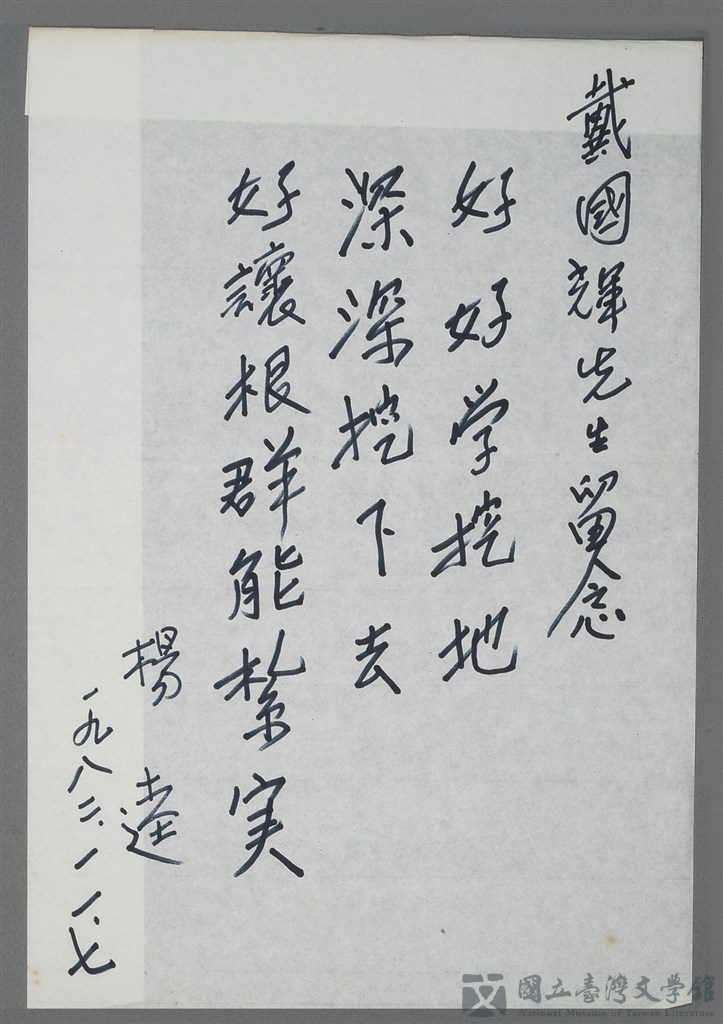 戴國輝先生留念
好好学挖地
深深挖下去
好讓根群能紮実
楊逵
一九八二.一一.七
國立臺灣文學館
National Museum of Taiwan Literature